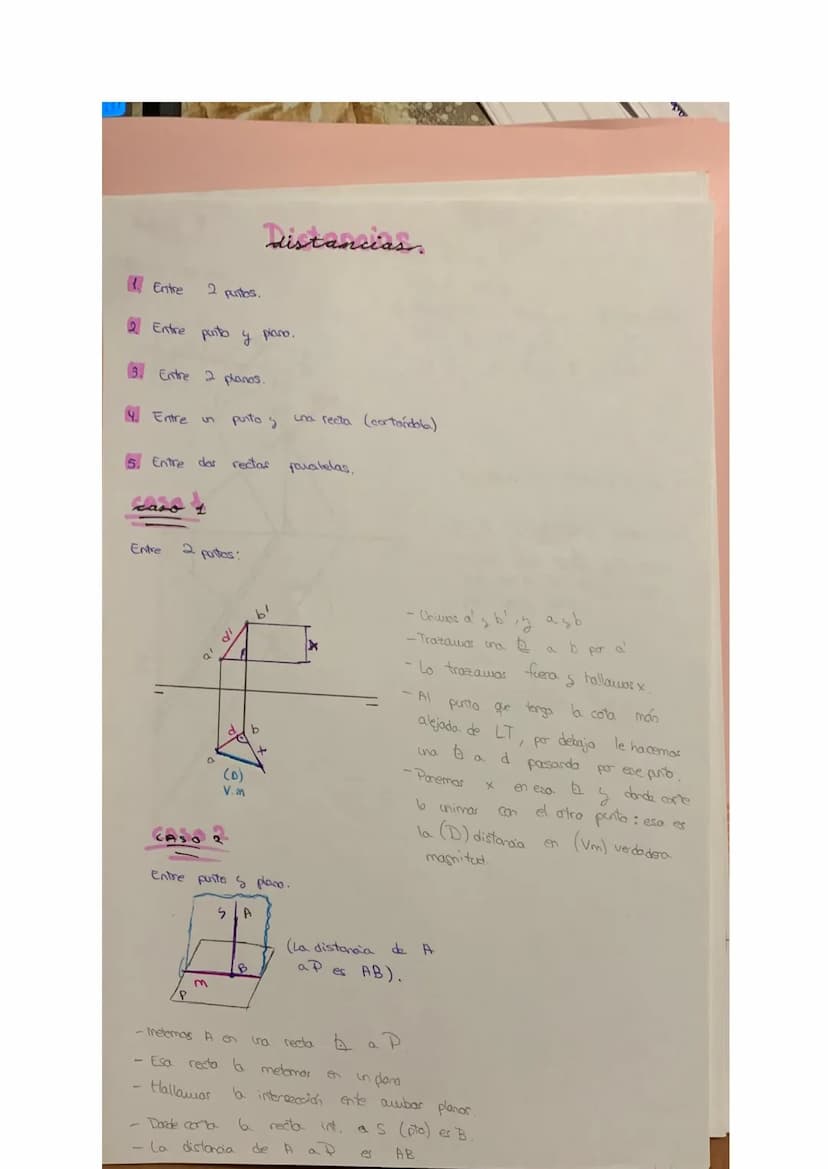 Distancias.
1. Entre 2 puntos.
2. Entre punto y plano.
3. Entre 2 planos.
4. Entre un punto y una recta (cortándola)
5. Entre dos rectas paralelas.
caso 1
Entre 2 puntos:
b'
d'
a'
x
d b
x
a
(D)
V.m
- Unimos a' y b', y a y b
- Trazamos una a b por a'
- Lo trazamos fuera y hallamos x.
- Al punto que tenga la cota más
alejada de LT, por debajo le hacemos
una a d pasando por ese punto.
- Ponemos x en esa y donde corte
lo unimos con el otro punto: esa es
la (D) distancia en (Vm) verdadera
magnitud.
CASO 2
Entre punto y plano.
S A
B
m
P
(La distancia de A
a P es AB).
- Metemos A en una recta a P
- Esa recta la metemos en un plano
- Hallamos la intersección ente ambos planos.
- Donde corta la recta int. a S (pto) es B.
- La distancia de A a P es AB